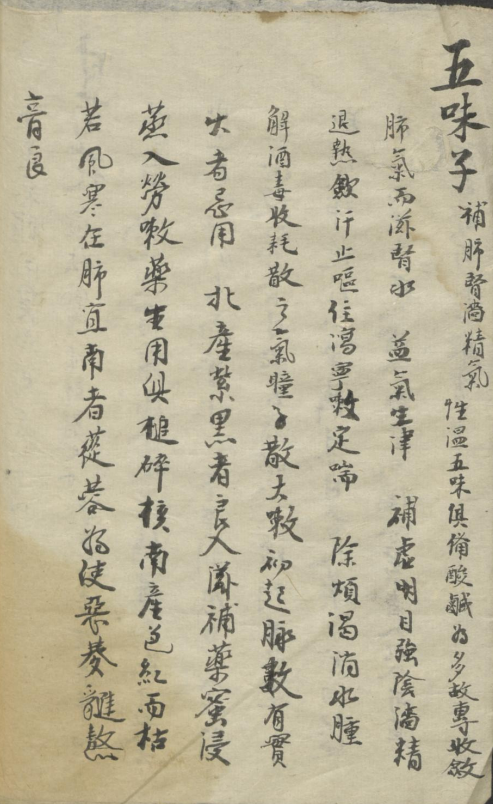 五味子 補肺腎濇精氣 性溫五味俱備酸鹹為多故專收斂
肺氣而滋腎水 益氣生津 補虛明目強陰濇精
退熱斂汗止嘔住瀉寧嗽定喘 除煩渴消水腫
解酒毒收耗散之氣瞳子散大嗽初起脉數有實
火者忌用 北產紫黑者良入滋補藥蜜浸
蒸入勞嗽藥生用俱槌碎核南產色紅而枯
若風寒在肺宜南者蓯蓉為使惡萎蕤熬
膏良